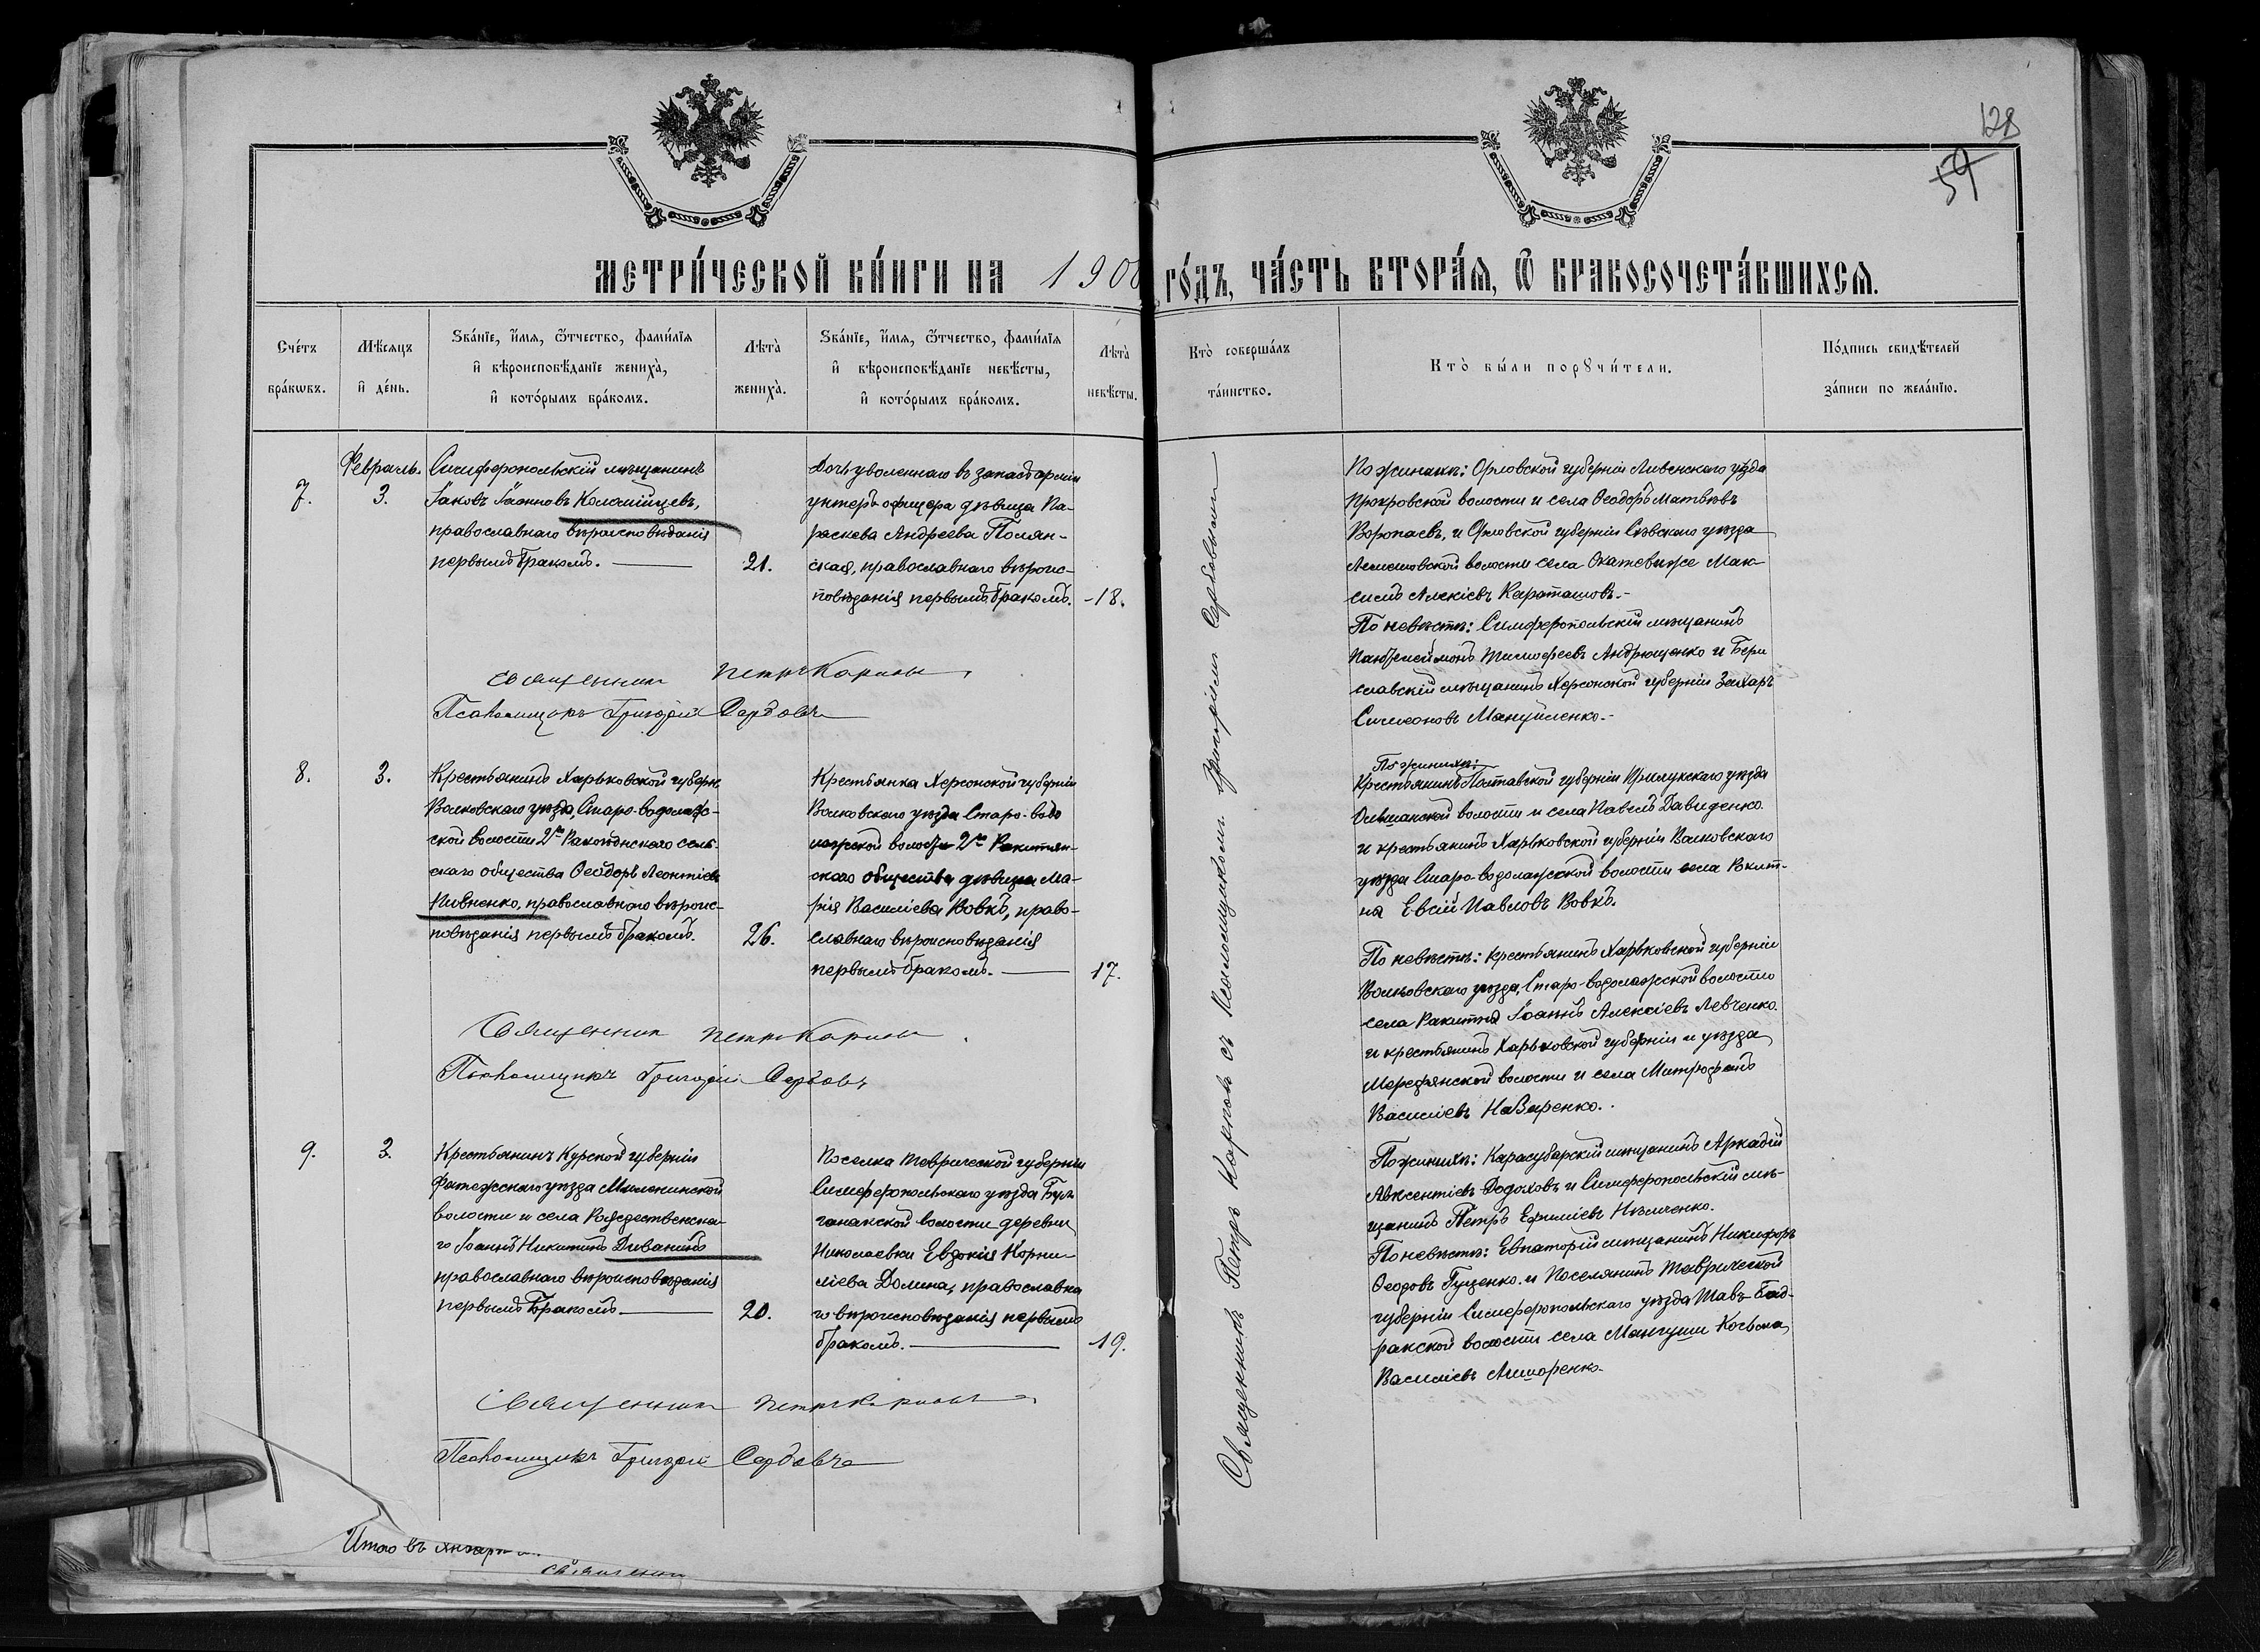 128
59
МЕТРИ́ЧЕСКОЙ КНИ́ГИ НА 1908 ГО́ДЪ, ЧА́СТЬ ВТОРА́Я, Ѿ БРАКОСОЧЕТА́ВШИХСЯ.
Сче́тъ бра́кѡвъ.
Мѣ́сяцъ и҆ де́нь.
Ѕва́нїе, и҆́мя, ѻ҆́тчество, фами́лїя
и҆ вѣроисповѣ́данїе жениха̀,
и҆ кото́рымъ бра́комъ.
Лѣта̀ жениха̀.
Ѕва́нїе, и҆́мя, ѻ҆́тчество, фами́лїя
и҆ вѣроисповѣ́данїе невѣ́сты,
и҆ кото́рымъ бра́комъ.
Лѣта̀ невѣ́сты.
Кто̀ соверша́лъ та́инство.
Кто̀ бы́ли порꙋчи́тели.
По́дпись свидѣ́телей
за́писи по жела́нїю.
7.
Февраль.
3.
Симферопольскій мѣщанинъ
Іаковъ Іоанновъ Коломійцевъ,
православнаго вѣроисповѣданія
первымъ бракомъ.
21.
Дочь уволеннаго въ запасъ арміи
унтеръ офицера дѣвица Па-
раскева Андреева Полян-
ская, православнаго вѣроис-
повѣданія первымъ бракомъ.
18.
По женихѣ: Орловской губерніи Ливенскаго уѣзда
Прокровской волости и села Ѳеодоръ Матѳѣевъ
Воропаевъ, и Орловской губерніи Сѣвскаго уѣзда
волости села Максимъ Алексіевъ Карташовъ.
По невѣстѣ: Симферопольскій мѣщанинъ
Пантелеймонъ Тимофеевъ Андрющенко и Бери
славскій мѣщанинъ Херсонской губерніи Захаръ
Симеоновъ Мануйленко.
Священникъ Петръ Карповъ
Псаломщикъ Григорій Сербовъ
8.
3.
Крестьянинъ Харьковской губерн.
Валковскаго уѣзда, Старо-водолаж-
ской волости 2го Ракитянскаго сель-
скаго общества Ѳеодоръ Леонтіевъ
Пивненко, православнаго вѣроис-
повѣданія первымъ бракомъ.
26.
Крестьянка Херсонской губерніи
Валковскаго уѣзда Старо-водо
лажской волости 2го Ракитян-
скаго общества дѣвица Ма-
рія Василіева Вовкъ, право-
славнаго вѣроисповѣданія
первымъ бракомъ.
17.
По женихѣ:
Крестьянинъ Полтавской губерніи Прилукскаго уѣзда
Ольшанской волости и села Павелъ Давиденко.
и крестьянинъ Харьковской губерніи Валковскаго
уѣзда Старо-водолажской волости села Ракит-
на Евсій Павловъ Вовкъ.
По невѣстѣ: крестьянинъ Харьковской губерніи
Валковскаго уѣзда, Старо-водолажской волости
села Ракитна Іоаннъ Алексіевъ Левченко.
и крестьянинъ Харьковской губерніи и уѣзда
Мерефянской волости и села Митрофанъ
Василіевъ Назаренко.
Священникъ Петръ Карповъ
Псаломщикъ Григорій Сербовъ
9.
3.
Крестьянинъ Курской губерніи
Фатежскаго уѣзда Миленинской
волости и села Рождественска-
го Іоаннъ Никитинъ Диванинъ
православнаго вѣроисповѣданія
первымъ бракомъ.
20.
Поселка Таврической губерніи
Симферопольскаго уѣзда Буль
ганакской волости деревни
Николаевки Евдокія Корни-
ліева Долина, православна
го вѣроисповѣданія первымъ
бракомъ.
19.
По женихѣ: Карасубарскій мѣщанинъ Аркадій
Авксентіевъ Додоховъ и Симферопольскій мѣ-
щанинъ Петръ Ефиміевъ
По невѣстѣ: Евпаторій мѣщанинъ Никифоръ
Ѳеодовъ Гуценко. и Поселянинъ Таврической
губерніи Симферопольскаго уѣзда Тавъ-Бад-
ракской волости села Мангуши Косьма
Василіевъ
Священникъ Петръ Карповъ
Псаломщикъ Григорій Сербовъ
Священникъ Петръ Карповъ съ Псаломщикомъ Григоріемъ Сербовымъ
Итого въ январѣ
Священникъ